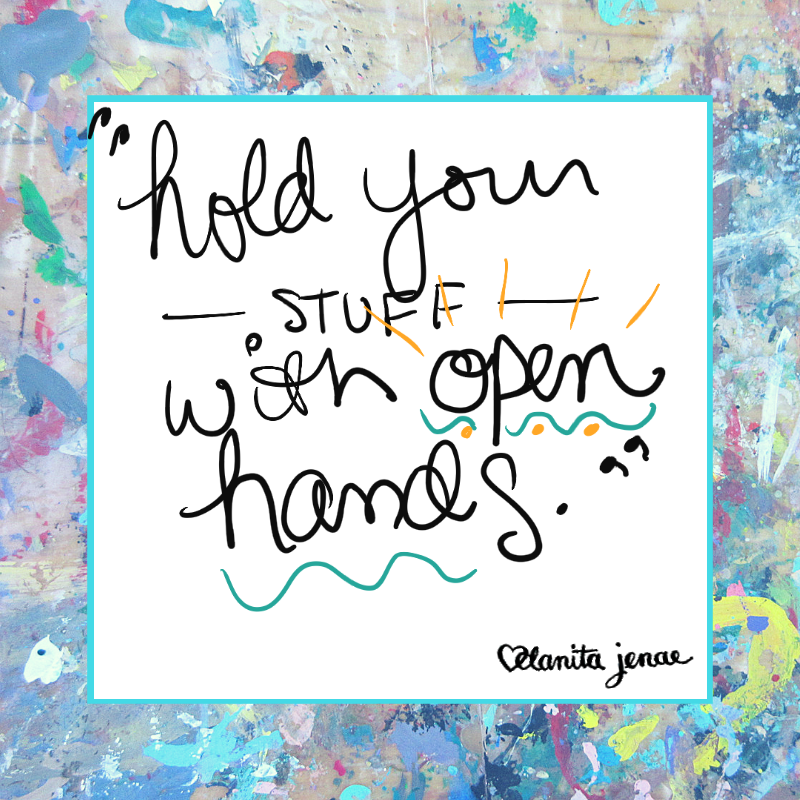 "hold your
— STUFF —
with open
hands."
melanita jenae